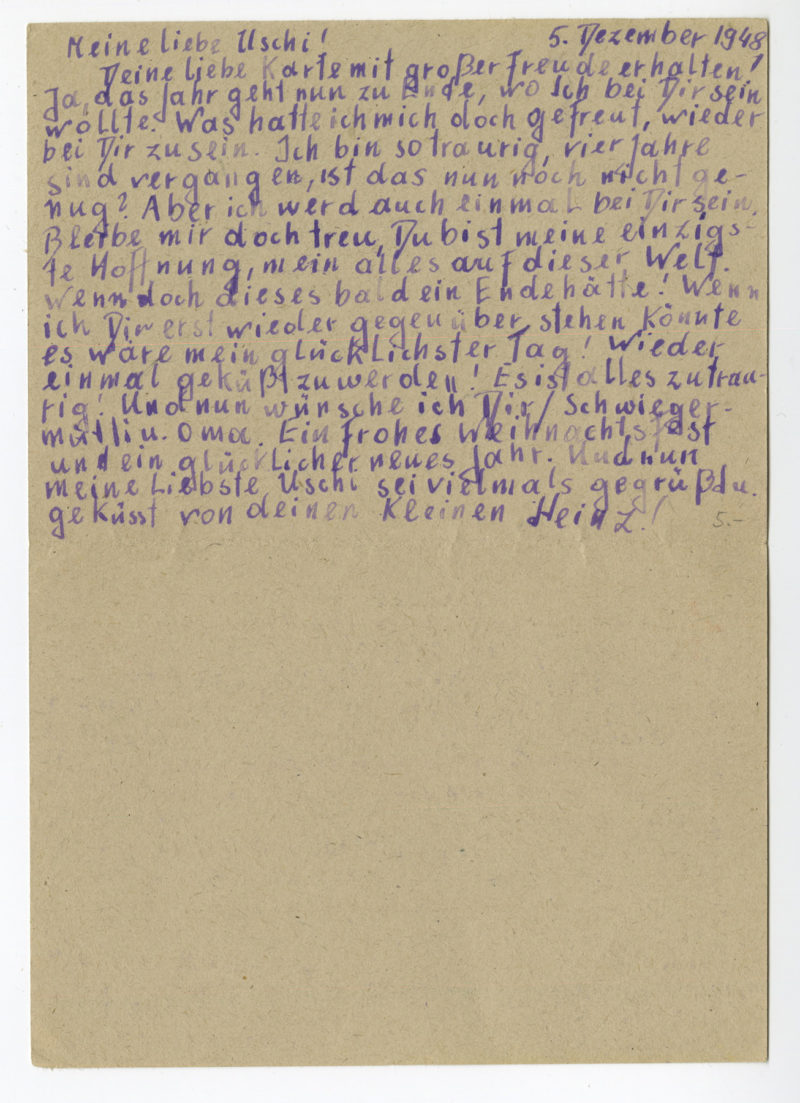 Meine liebe Uschi! 5. Dezember 1948
Deine liebe Karte mit großer Freude erhalten!
Ja, das Jahr geht nun zu Ende, wo ich bei Dir sein
wollte. Was hatte ich mich doch gefreut, wieder
bei Dir zu sein. Ich bin so traurig, vier Jahre
sind vergangen, ist das nun noch nicht ge-
nug? Aber ich werd auch einmal bei Dir sein.
Bleibe mir doch treu, Du bist meine einzigs-
te Hoffnung, mein alles auf dieser Welt.
Wenn doch dieses bald ein Ende hätte! Wenn
ich Dir erst wieder gegenüber stehen könnte
es wäre mein glücklichster Tag! Wieder
einmal geküßt zu werden! Es ist alles zu trau-
rig! Und nun wünsche ich Dir / Schwieger-
mutti u. Oma. Ein frohes Weihnachtsfest
und ein glücklicher neues Jahr. Und nun
meine Liebste Uschi sei vielmals gegrüßt u.
geküsst von deinen kleinen Heinz! 5.-